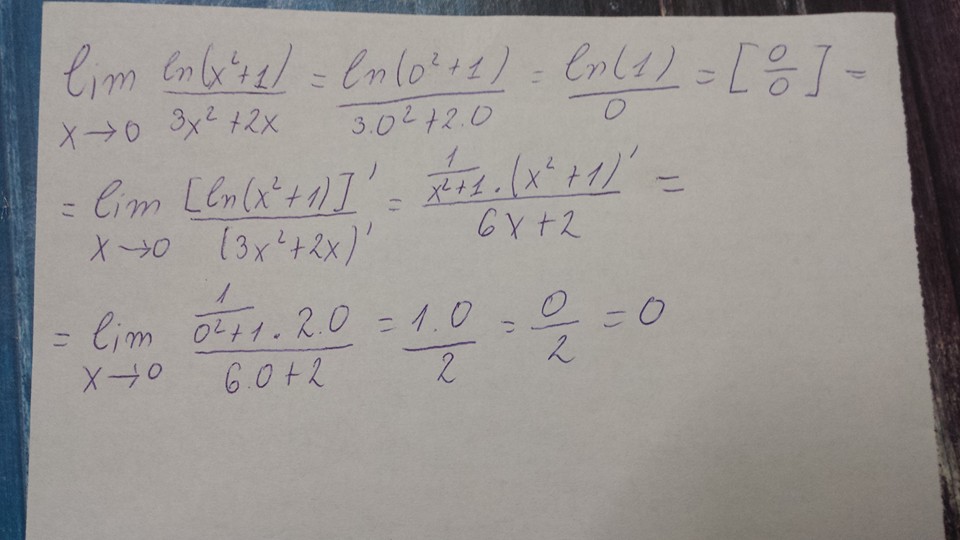 lim x→0 ln(x²+1)/(3x²+2x) = ln(0²+1)/(3.0²+2.0) = ln(1)/0 = [0/0] =
= lim x→0 [ln(x²+1)]'/(3x²+2x)' = (1/(x²+1) . (x²+1)')/(6x+2) =
= lim x→0 (1/(0²+1) . 2.0)/(6.0+2) = 1.0/2 = 0/2 = 0